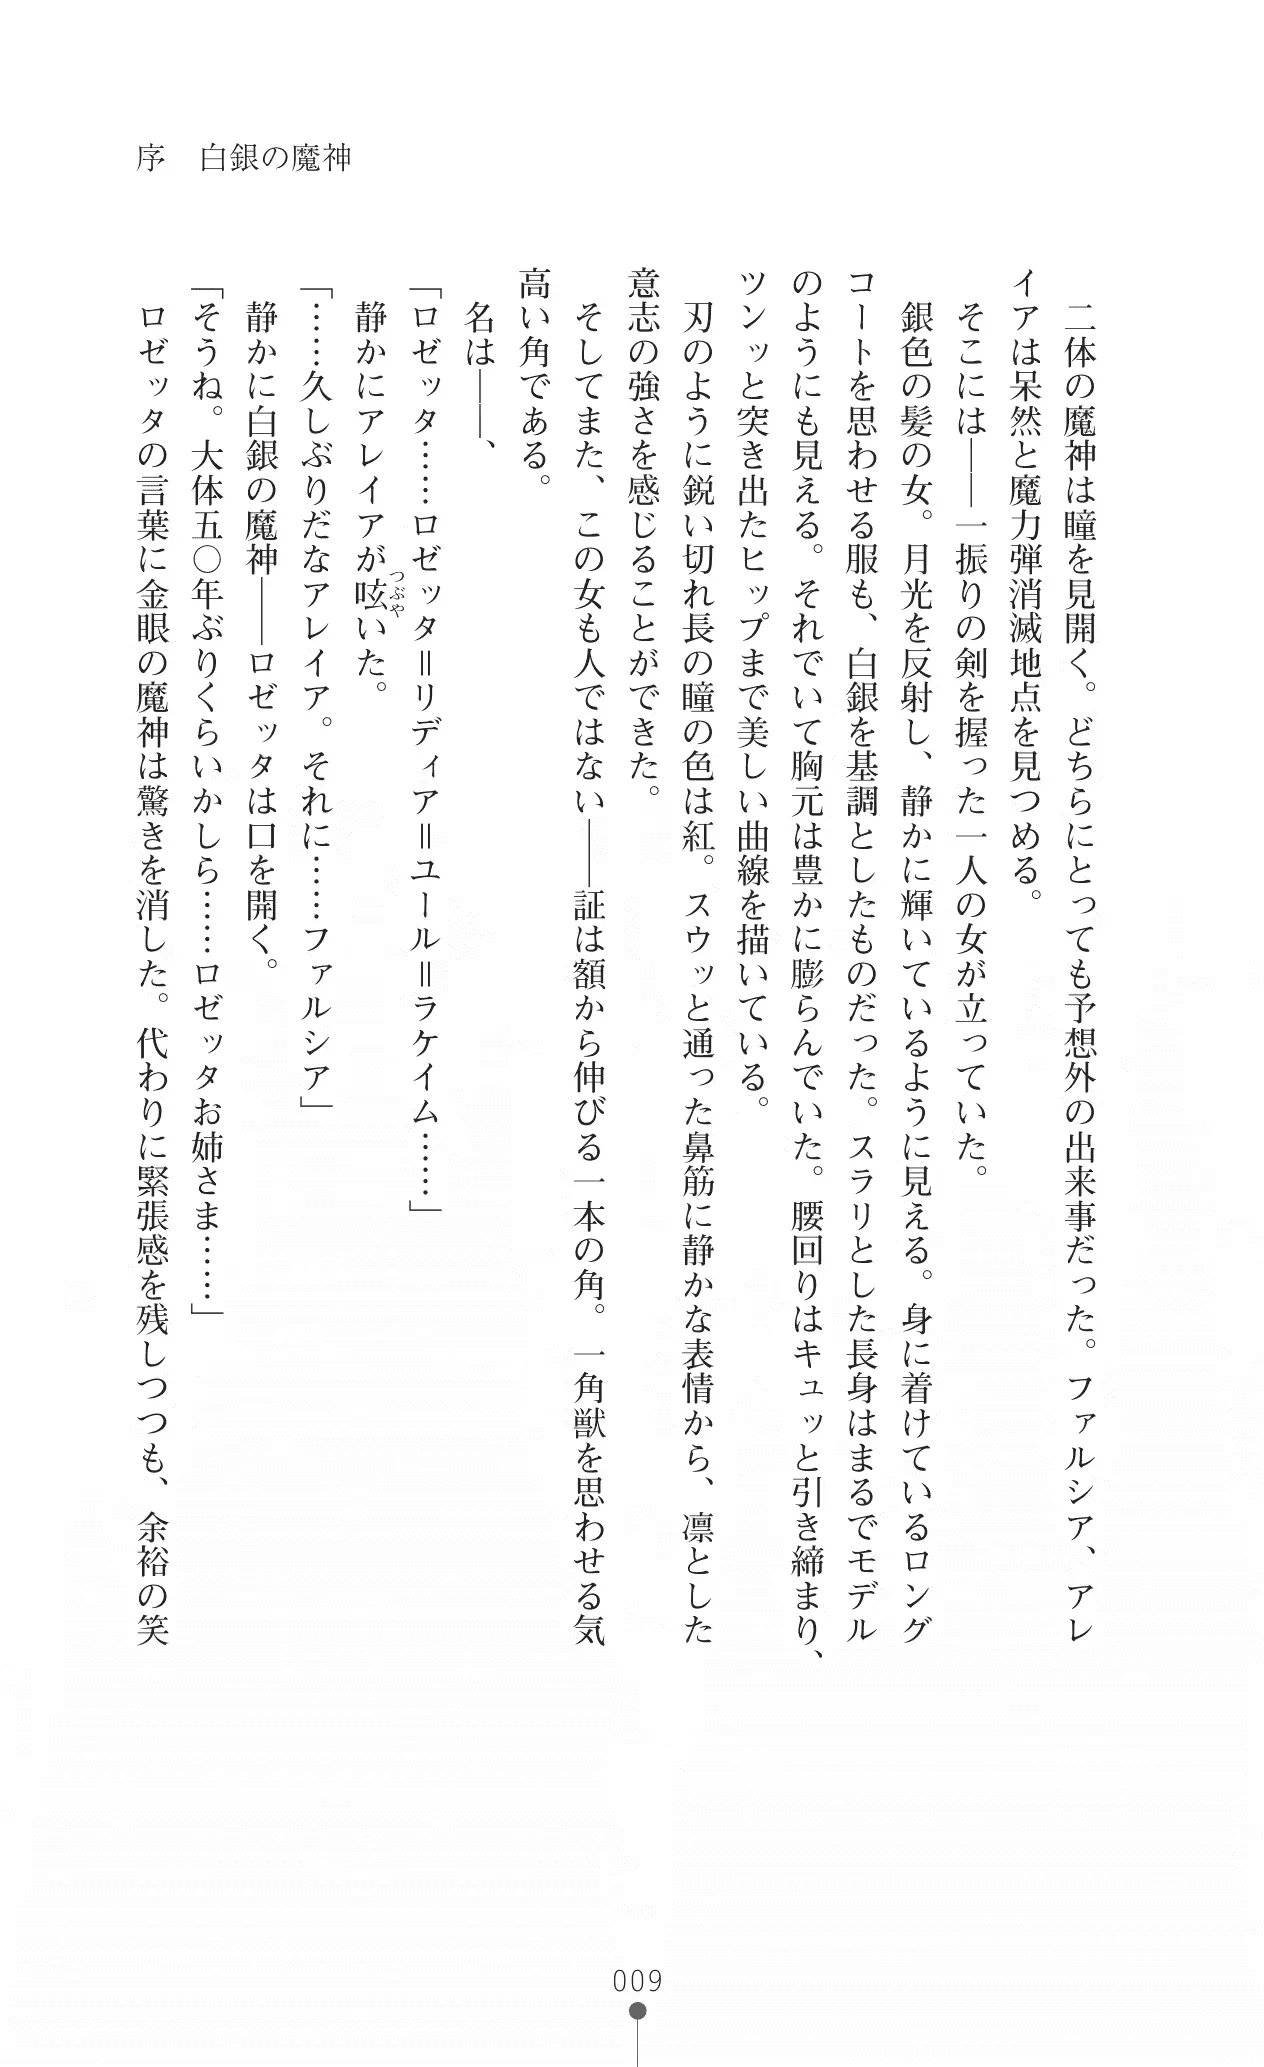 序　白銀の魔神
　二体の魔神は瞳を見開く。どちらにとっても予想外の出来事だった。ファルシア、アレ
イアは呆然と魔力弾消滅地点を見つめる。
　そこには――一振りの剣を握った一人の女が立っていた。
　銀色の髪の女。月光を反射し、静かに輝いているように見える。身に着けているロング
コートを思わせる服も、白銀を基調としたものだった。スラリとした長身はまるでモデル
のようにも見える。それでいて胸元は豊かに膨らんでいた。腰回りはキュッと引き締まり、
ツンッと突き出たヒップまで美しい曲線を描いている。
　刃のように鋭い切れ長の瞳の色は紅。スウッと通った鼻筋に静かな表情から、凛とした
意志の強さを感じることができた。
　そしてまた、この女も人ではない――証は額から伸びる一本の角。一角獣を思わせる気
高い角である。
　名は――、
「ロゼッタ……ロゼッタ＝リディア＝ユール＝ラケイム……」
　静かにアレイアが呟いた。
つぶや
「……久しぶりだなアレイア。それに……ファルシア」
　静かに白銀の魔神――ロゼッタは口を開く。
「そうね。大体五〇年ぶりくらいかしら……ロゼッタお姉さま……」
　ロゼッタの言葉に金眼の魔神は驚きを消した。代わりに緊張感を残しつつも、余裕の笑
009